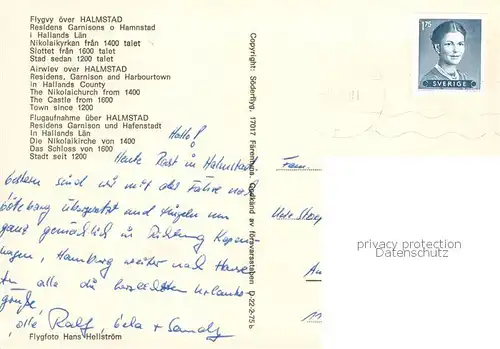 Flygvy över HALMSTAD
Residens Garnisons o Hamnstad
i Hallands Län
Nikolaikyrkan från 1400 talet
Slottet från 1600 talet
Stad sedan 1200 talet
Airwiev over HALMSTAD
Residens, Garnison and Harbourtown
in Hallands County
The Nikolaichurch from 1400
The Castle from 1600
Town since 1200
Flugaufnahme über HALMSTAD
Residens Garnison und Hafenstadt
In Hallands Län
Die Nikolaikirche von 1400
Das Schloss von 1600
Stadt seit 1200
Hallo!
Heute Rast in Halmstad
gestern sind wir mit der Fähre nach
Göteborg übergesetzt und
ganz gemächlich in Richtung Kopen
hagen, Hamburg weiter nach Hause
alle die herzlichsten Urlaubs
grüße,
alle Ralf, + Sandy
Flygfoto Hans Hellström
Copyright: Söderflyg. 17017 Färentuna. Godkänd av försvarsstaben D-22-2-75 b
1.75
SVERIGE
Fam.
Uwe
privacy protection
Datenschutz